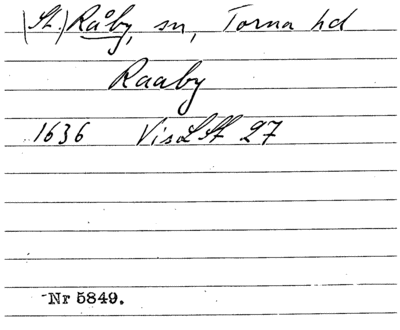 (St.) Råby, sn, Torna hd
Raaby
1636 VisLSt 27
Nr 5849.